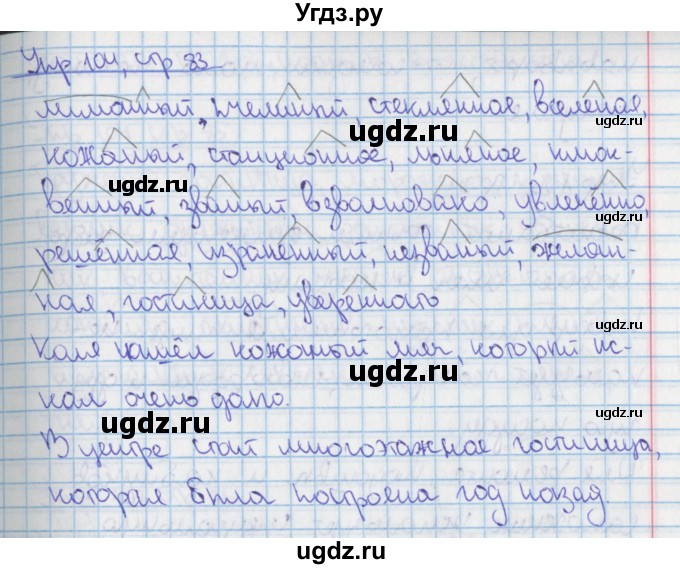 Угдз.ру
Упр 104, стр 83
лиманный, пчелиный, стеклянное, веяная,
кожаный, станционное, льняное, клюк-
венный, званый, взволновано, увлечённо,
решённая, израненный, незваный, желан-
ная, гостиница, уверенного
Коля нашёл кожаный мяч, который ис-
кал очень долго.
В центре стоит многоэтажное гостиница,
которая была построена год назад.
ugdz.ru
ugdz.ru
ugdz.ru
ugdz.ru
ugdz.ru
ugdz.ru
ugdz.ru
ugdz.ru
ugdz.ru
ugdz.ru